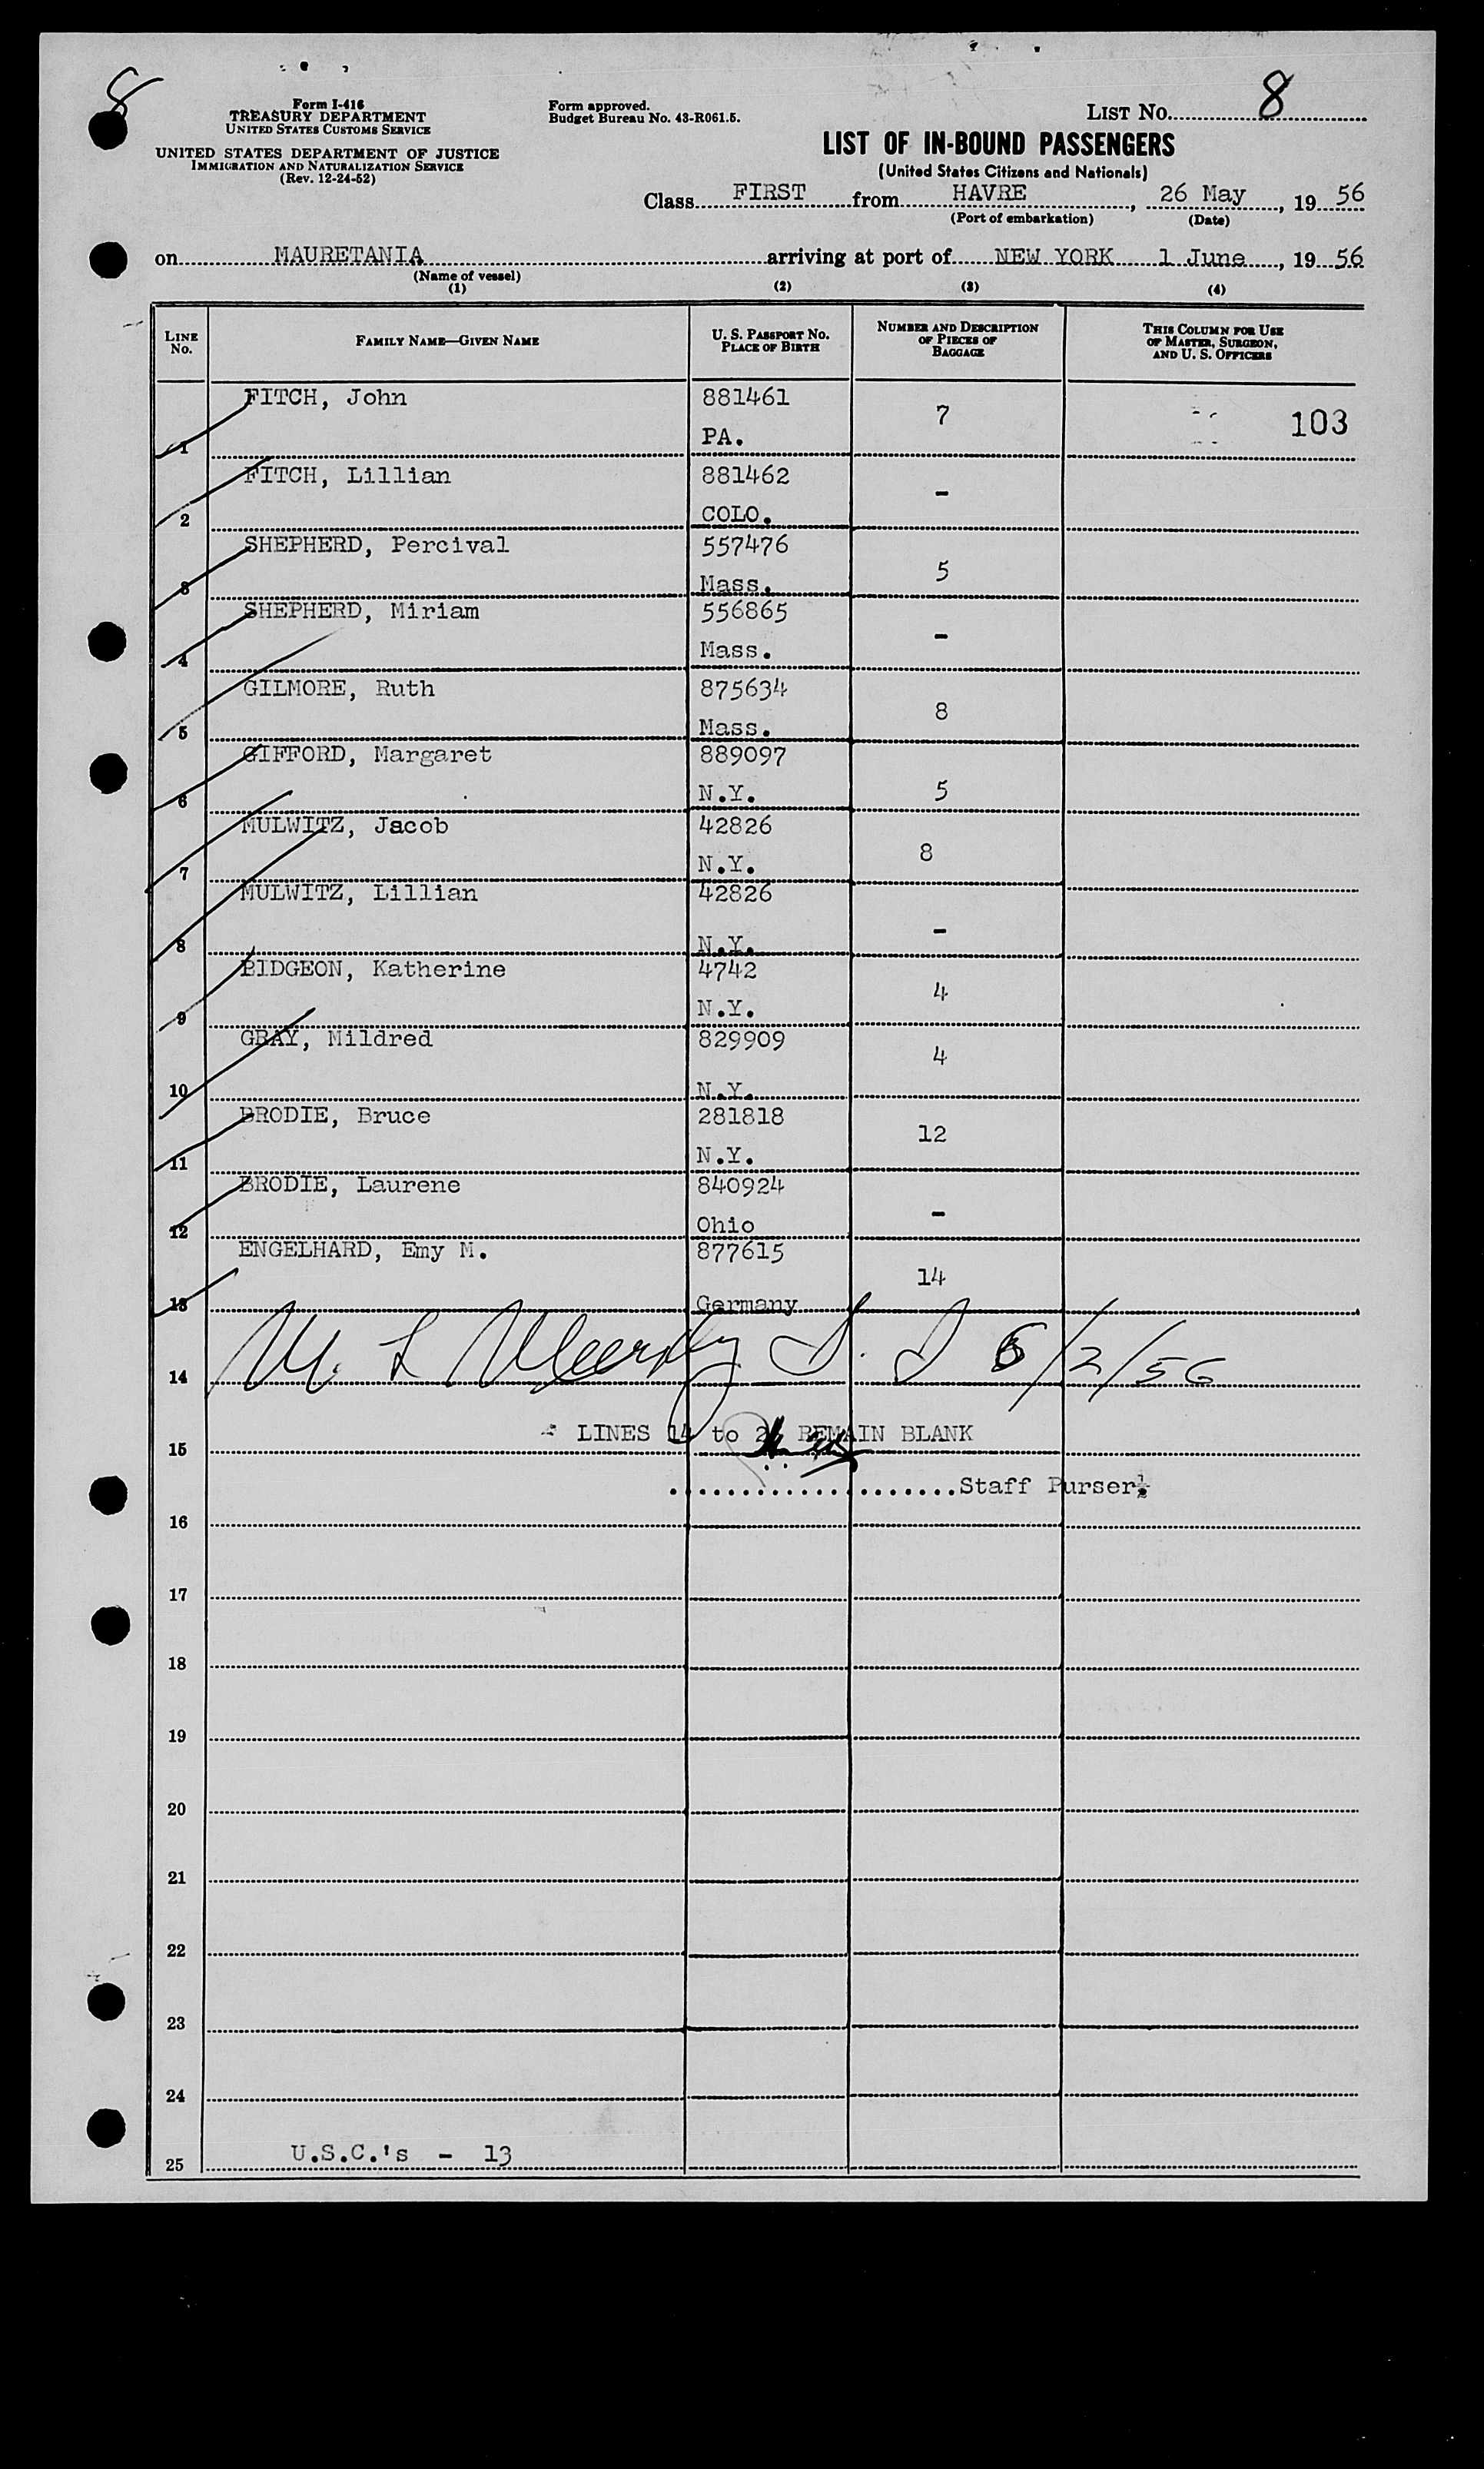 8
Form I-416
TREASURY DEPARTMENT
UNITED STATES CUSTOMS SERVICE
UNITED STATES DEPARTMENT OF JUSTICE
IMMIGRATION AND NATURALIZATION SERVICE
(Rev. 12-24-52)
Form approved.
Budget Bureau No. 43-R061.5.
LIST No. 8
LIST OF IN-BOUND PASSENGERS
(United States Citizens and Nationals)
Class FIRST from HAVRE, 26 May, 19 56
(Port of embarkation) (Date)
on MAURETANIA arriving at port of NEW YORK 1 June, 19 56
(Name of vessel)
(1) (2) (3) (4)
LINE No. FAMILY NAME—GIVEN NAME U. S. PASSPORT No. PLACE OF BIRTH NUMBER AND DESCRIPTION OF PIECES OF BAGGAGE THIS COLUMN FOR USE OF MASTER, SURGEON, AND U. S. OFFICERS
1 FITCH, John 881461 PA. 7 103
2 FITCH, Lillian 881462 COLO. -
3 SHEPHERD, Percival 557476 Mass. 5
4 SHEPHERD, Miriam 556865 Mass. -
5 GILMORE, Ruth 875634 Mass. 8
6 GIFFORD, Margaret 889097 N.Y. 5
7 MULWITZ, Jacob 42826 N.Y. 8
8 MULWITZ, Lillian 42826 N.Y. -
9 PIDGEON, Katherine 4742 N.Y. 4
10 GRAY, Mildred 829909 N.Y. 4
11 BRODIE, Bruce 281818 N.Y. 12
12 BRODIE, Laurene 840924 Ohio -
13 ENGELHARD, Emy M. 877615 Germany 14
14 M. L 6/2/56
15 LINES 14 to REMAIN BLANK
....................Staff Purser.
16
17
18
19
20
21
22
23
24
25 U.S.C.'s - 13